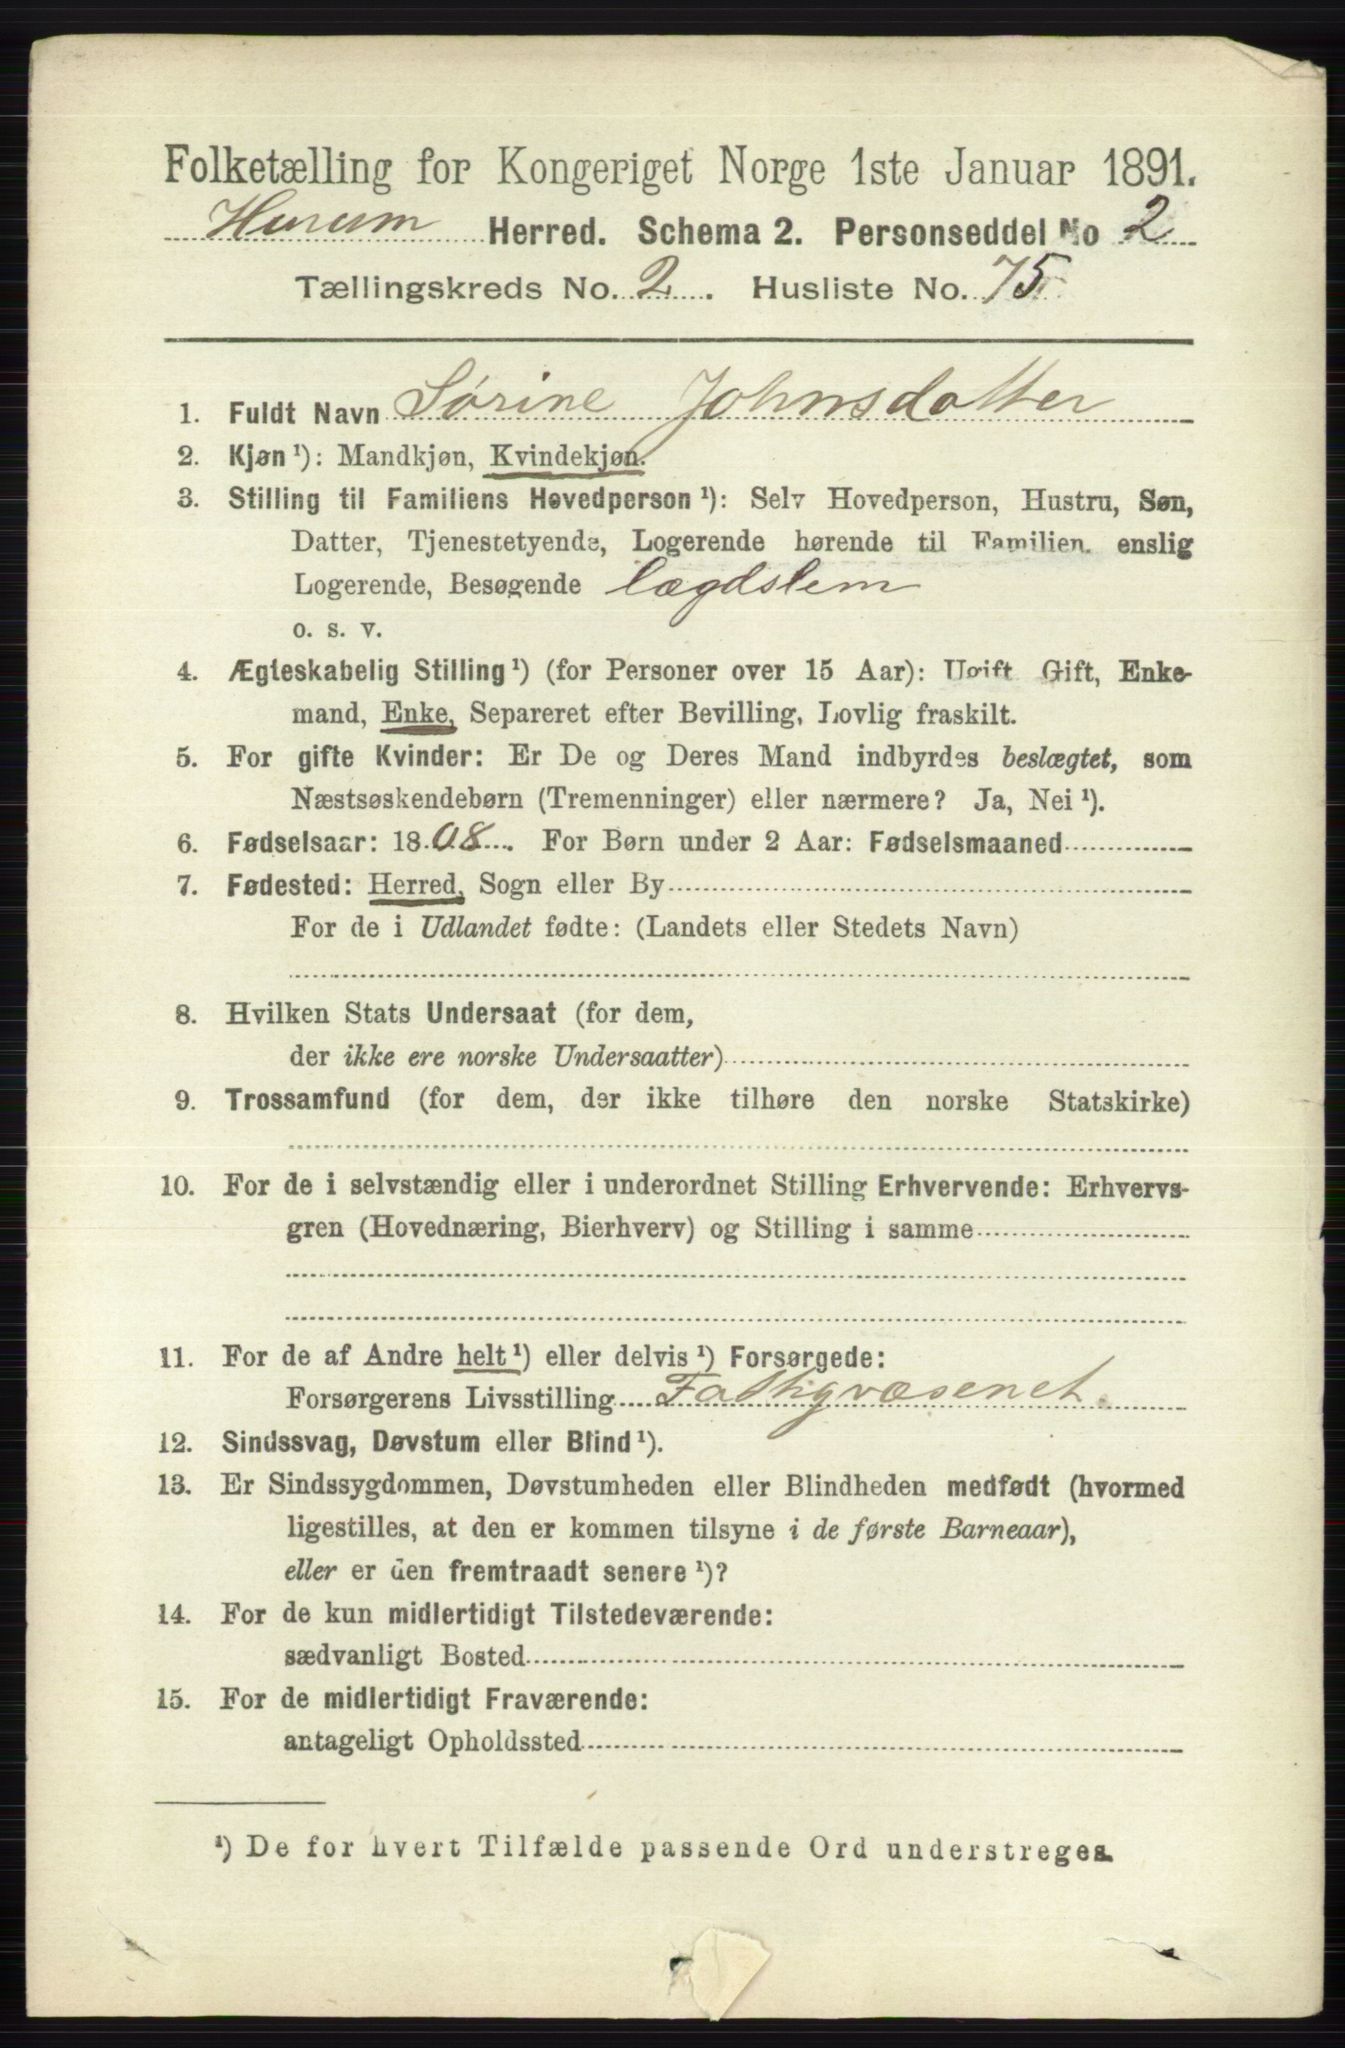 Folketælling for Kongeriget Norge 1ste Januar 1891.
Hurum Herred. Schema 2. Personseddel No 2
Tællingskreds No. 2. Husliste No. 75
1. Fuldt Navn Sørine Johnsdatter
2. Kjøn ¹): Mandkjøn, Kvindekjøn.
3. Stilling til Familiens Hovedperson ¹): Selv Hovedperson, Hustru, Søn,
Datter, Tjenestetyende, Logerende hørende til Familien, enslig
Logerende, Besøgende lægdslem
o. s. v.
4. Ægteskabelig Stilling ¹) (for Personer over 15 Aar): Ugift, Gift, Enke-
mand, Enke, Separeret efter Bevilling, Lovlig fraskilt.
5. For gifte Kvinder: Er De og Deres Mand indbyrdes beslægtet, som
Næstsøskendebørn (Tremenninger) eller nærmere? Ja, Nei ¹).
6. Fødselsaar: 1808. For Børn under 2 Aar: Fødselsmaaned
7. Fødested: Herred, Sogn eller By
For de i Udlandet fødte: (Landets eller Stedets Navn)
8. Hvilken Stats Undersaat (for dem,
der ikke ere norske Undersaatter)
9. Trossamfund (for dem, der ikke tilhøre den norske Statskirke)
10. For de i selvstændig eller i underordnet Stilling Erhvervende: Erhvervs-
gren (Hovednæring, Bierhverv) og Stilling i samme
11. For de af Andre helt ¹) eller delvis ¹) Forsørgede:
Forsørgerens Livsstilling Fattigvæsenet.
12. Sindssvag, Døvstum eller Blind ¹).
13. Er Sindssygdommen, Døvstumheden eller Blindheden medfødt (hvormed
ligestilles, at den er kommen tilsyne i de første Barneaar),
eller er den fremtraadt senere ¹)?
14. For de kun midlertidigt Tilstedeværende:
sædvanligt Bosted
15. For de midlertidigt Fraværende:
antageligt Opholdssted
¹) De for hvert Tilfælde passende Ord understreges.